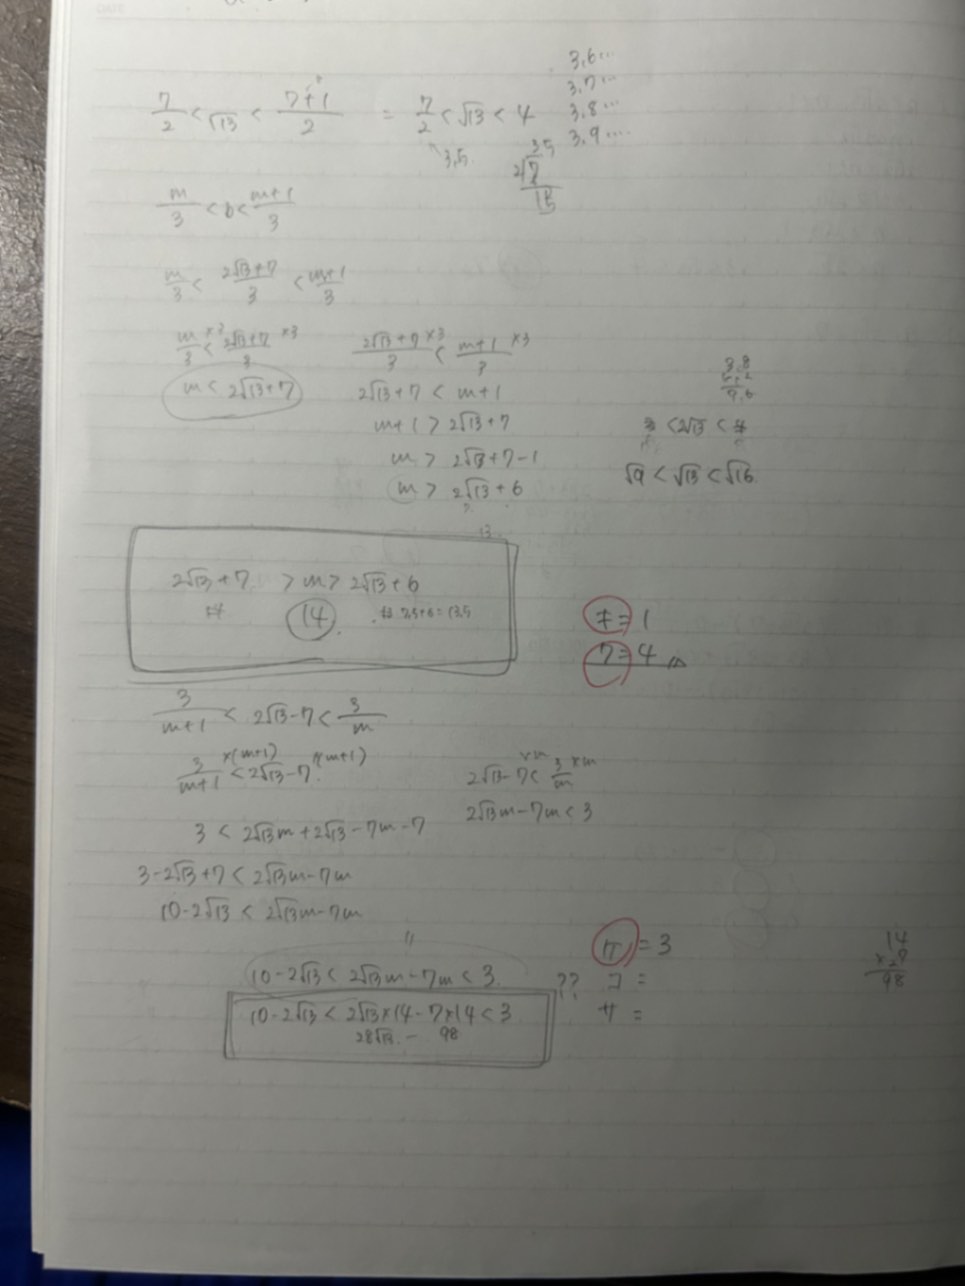 7/2 < √13 < 7+1/2 = 7/2 < √13 < 4
3,6...
3,7...
3,8...
3,9....
3,5
35
2√7
m/3 < b < m+1/3
m/3 < 2√13+7/3 < m+1/3
m/3 ×3 < 2√13+7/3 ×3
2√13+7/3 ×3 < m+1/3 ×3
m < 2√13+7
2√13+7 < m+1
m+1 > 2√13+7
m > 2√13+7-1
m > 2√13+6
< 2√13 <
√9 < √13 < √16
2√13+7 > m > 2√13+6
14
7.5+6=13,5
オ=1
カ=4
3/m+1 < 2√13-7 < 3/m
3/m+1 ×(m+1) < 2√13-7 ×(m+1)
2√13-7 ×m < 3/m ×m
2√13m-7m < 3
3 < 2√13m+2√13-7m-7
3-2√13+7 < 2√13m-7m
10-2√13 < 2√13m-7m
10-2√13 < 2√13m-7m < 3
10-2√13 < 2√13×14-7×14 < 3
28√13 - 98
ケ=3
?? コ=
サ=
14
×7
98